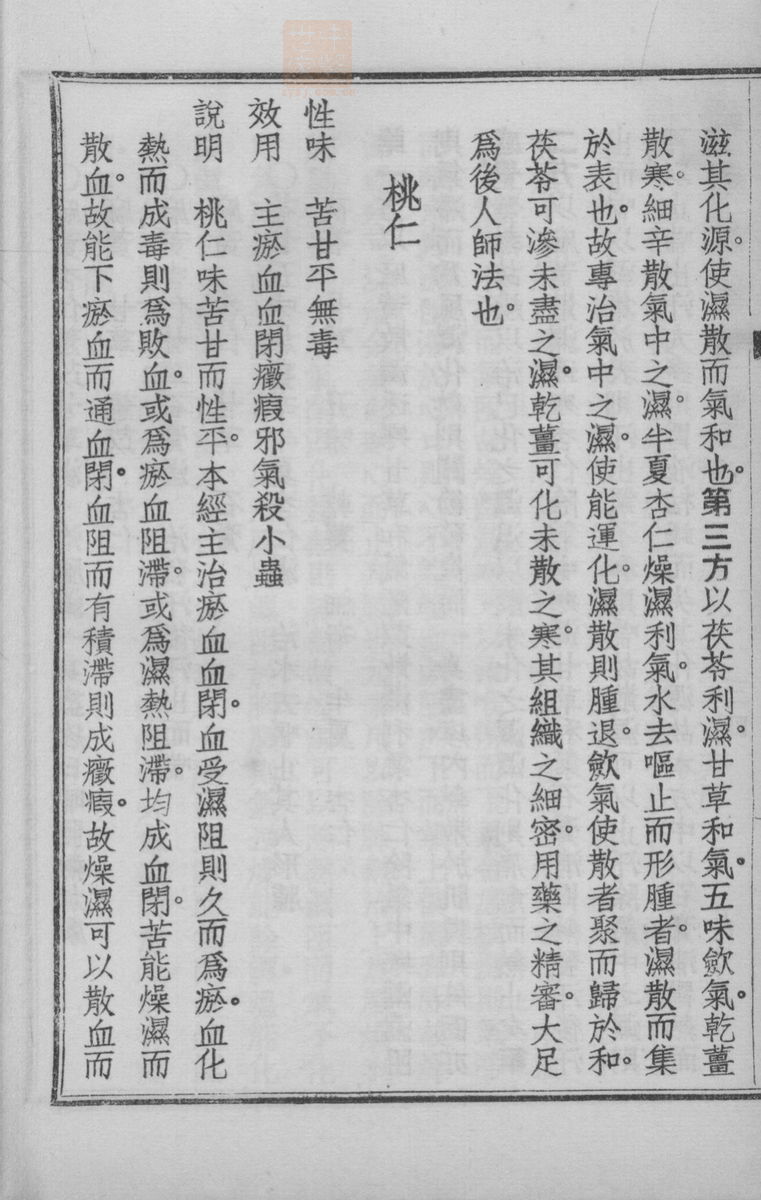 滋其化源。使濕散而氣和也。第三方以茯苓利濕。甘草和氣。五味斂氣。乾薑
散寒。細辛散氣中之濕。半夏杏仁燥濕利氣。水去嘔止而形腫者。濕散而集
於表也。故專治氣中之濕。使能運化。濕散則腫退。斂氣使散者聚而歸於和。
茯苓可滲未盡之濕。乾薑可化未散之寒。其組織之細密。用藥之精審。大足
爲後人師法也。
桃仁
性味　苦甘平無毒
效用　主瘀血血閉癥瘕邪氣殺小蟲
說明　桃仁味苦甘而性平。本經主治瘀血血閉。血受濕阻則久而爲瘀。血化
熱而成毒則爲敗血。或爲瘀血阻滯。或爲濕熱阻滯。均成血閉。苦能燥濕而
散血。故能下瘀血而通血閉。血阻而有積滯則成癥瘕。故燥濕可以散血而